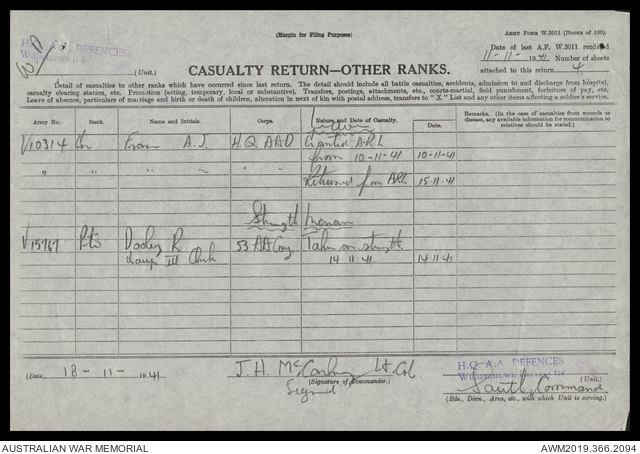 (Margin for Filing Purposes)
ARMY FORM W.3011 (BOOKS of 100).
H.Q. A.A. DEFENCES
(Unit.)
Date of last A.F. W.3011 rendered
11-11-1941 Number of sheets
attached to this return 4
CASUALTY RETURN—OTHER RANKS.
Detail of casualties to other ranks which have occurred since last return. The detail should include all battle casualties, accidents, admission to and discharge from hospital,
casualty clearing station, etc. Promotion (acting, temporary, local or substantive). Transfers, postings, attachments, etc., court-martial, field punishment, forfeiture of pay, etc.
Leave of absence, particulars of marriage and birth or death of children, alteration in next of kin with postal address, transfers to "X" List and any other items affecting a soldier's service.
Army No. Rank. Name and Initials. Corps. Nature and Date of Casualty. Date. Remarks. (In the case of casualties from wounds or disease, any available information for communication to relatives should be stated.)
Leave
V10314 A.J. H.Q. AAD Granted A.R.L
from 10-11-41 10-11-41
" " " " " Returned from ARL 15-11-41
Strength Increase
V15767 Pte Dooley R 53 AA Coy Taken on strength
Group III Clerk 14.11.41. 14.11.41
(Date 18-11-1941
J. H. Lt. Col
(Signature of Commander.)
Signed
H.Q. A.A. DEFENCES
(Unit.)
South Command
(Bde., Divn., Area, etc., with which Unit is serving.)
AUSTRALIAN WAR MEMORIAL
AWM2019.366.2094